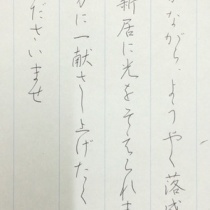 ながら、ようやく落成
新居に光をそえられま
に一献さし上げたく
ださいませ